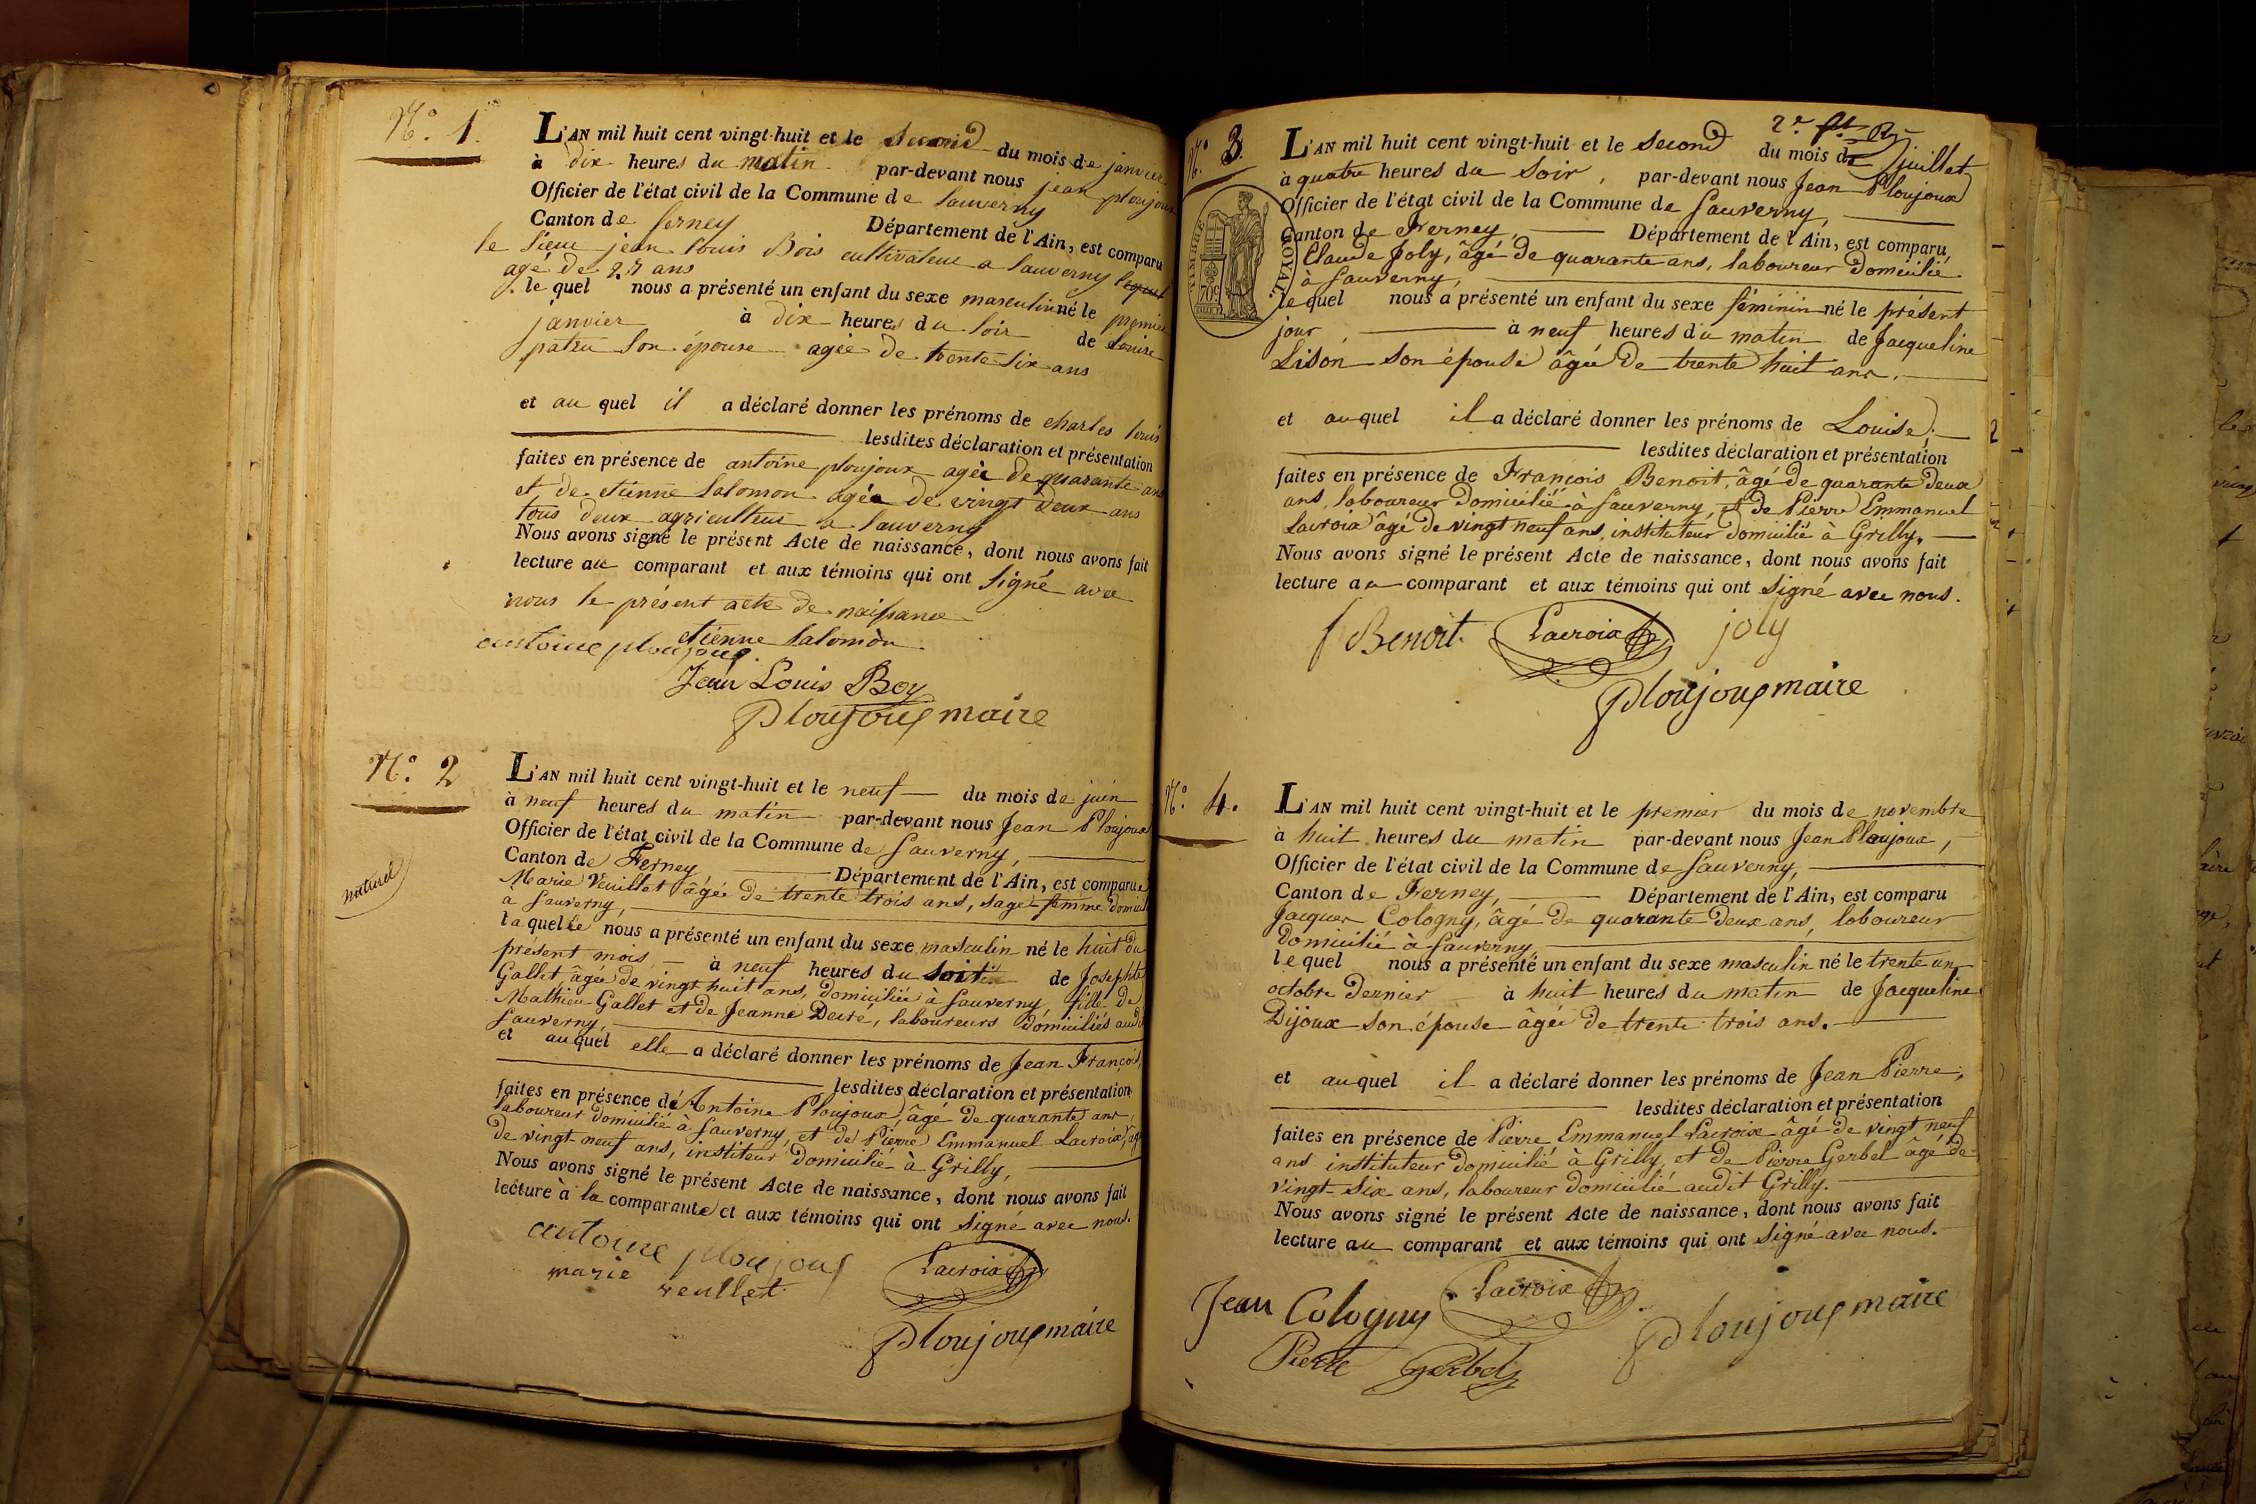 N.° 1.
L'AN mil huit cent vingt-huit et le second du mois de janvier
à dix heures du matin par-devant nous jean ploujoux
Officier de l'état civil de la Commune de Sauverny
Canton de ferney Département de l'Ain, est comparu
le sieur jean Louis Bois cultivateur a Sauverny
agé de 27 ans
le quel nous a présenté un enfant du sexe masculin né le premier
janvier à dix heures du soir de Louise
patru son épouse agée de trente six ans
et au quel il a déclaré donner les prénoms de charles louis
lesdites déclaration et présentation
faites en présence de antoine ploujoux agée de quarante ans
et de etienne Salomon agée de vingt deux ans
tous deux agriculteur a Sauverny
Nous avons signé le présent Acte de naissance, dont nous avons fait
lecture au comparant et aux témoins qui ont signé avec
nous le présent acte de naissance
etienne Salomon
antoine ploujoux
Jean Louis Boy
Ploujoux maire
N.° 2
naturel
L'AN mil huit cent vingt-huit et le neuf du mois de juin
à neuf heures du matin par-devant nous Jean Ploujoux
Officier de l'état civil de la Commune de Sauverny,
Canton de Ferney Département de l'Ain, est comparue
Marie Veuillet âgée de trente trois ans, sage-femme domicil
à Sauverny,
laquelle nous a présenté un enfant du sexe masculin né le huit du
présent mois, à neuf heures du de Josephte
Gallet, âgée de vingt huit ans, domiciliée à Sauverny, fille de
Mathieu Gallet et de Jeanne Decré, laboureurs domiciliés audit
Sauverny,
et auquel elle a déclaré donner les prénoms de Jean François,
lesdites déclaration et présentation
faites en présence de Antoine Ploujoux, âgé de quarante ans,
laboureur domicilié à Sauverny, et de Pierre Emmanuel Lacroix, âgé
de vingt neuf ans, instituteur domicilié à Grilly,
Nous avons signé le présent Acte de naissance, dont nous avons fait
lecture à la comparante et aux témoins qui ont signé avec nous.
antoine ploujoux
marie veullet
Lacroix
Ploujoux maire
N.° 3.
2.e
L'AN mil huit cent vingt-huit et le second du mois de juillet
à quatre heures du soir, par-devant nous Jean Ploujoux
Officier de l'état civil de la Commune de Sauverny,
Canton de Ferney, Département de l'Ain, est comparu
Claude Joly, âgé de quarante ans, laboureur domicilié
à Sauverny,
lequel nous a présenté un enfant du sexe féminin né le présent
jour, à neuf heures du matin de Jacqueline
Lison son épouse âgée de trente huit ans.
et auquel il a déclaré donner les prénoms de Louise.
lesdites déclaration et présentation
faites en présence de François Benoit, âgé de quarante deux
ans, laboureur domicilié à Sauverny, et de Pierre Emmanuel
Lacroix âgé de vingt neuf ans, instituteur domicilié à Grilly.
Nous avons signé le présent Acte de naissance, dont nous avons fait
lecture au comparant et aux témoins qui ont signé avec nous.
f Benoit. Lacroix joly
Ploujoux maire
TIMBRE ROYAL.
N.° 4.
L'AN mil huit cent vingt-huit et le premier du mois de novembre
à huit heures du matin par-devant nous Jean Ploujoux,
Officier de l'état civil de la Commune de Sauverny,
Canton de Ferney, Département de l'Ain, est comparu
Jacques Cologny, âgé de quarante deux ans, laboureur
domicilié à Sauverny,
lequel nous a présenté un enfant du sexe masculin né le trente un
octobre dernier à huit heures du matin de Jacqueline
Dijoux son épouse âgée de trente trois ans.
et auquel il a déclaré donner les prénoms de Jean Pierre,
lesdites déclaration et présentation
faites en présence de Pierre Emmanuel Lacroix âgé de vingt neuf
ans instituteur domicilié à Grilly, et de Pierre Gerbel âgé de
vingt-six ans, laboureur domicilié audit Grilly.
Nous avons signé le présent Acte de naissance, dont nous avons fait
lecture au comparant et aux témoins qui ont signé avec nous.
Jean Cologny Lacroix Ploujoux maire
Pierre gerbel